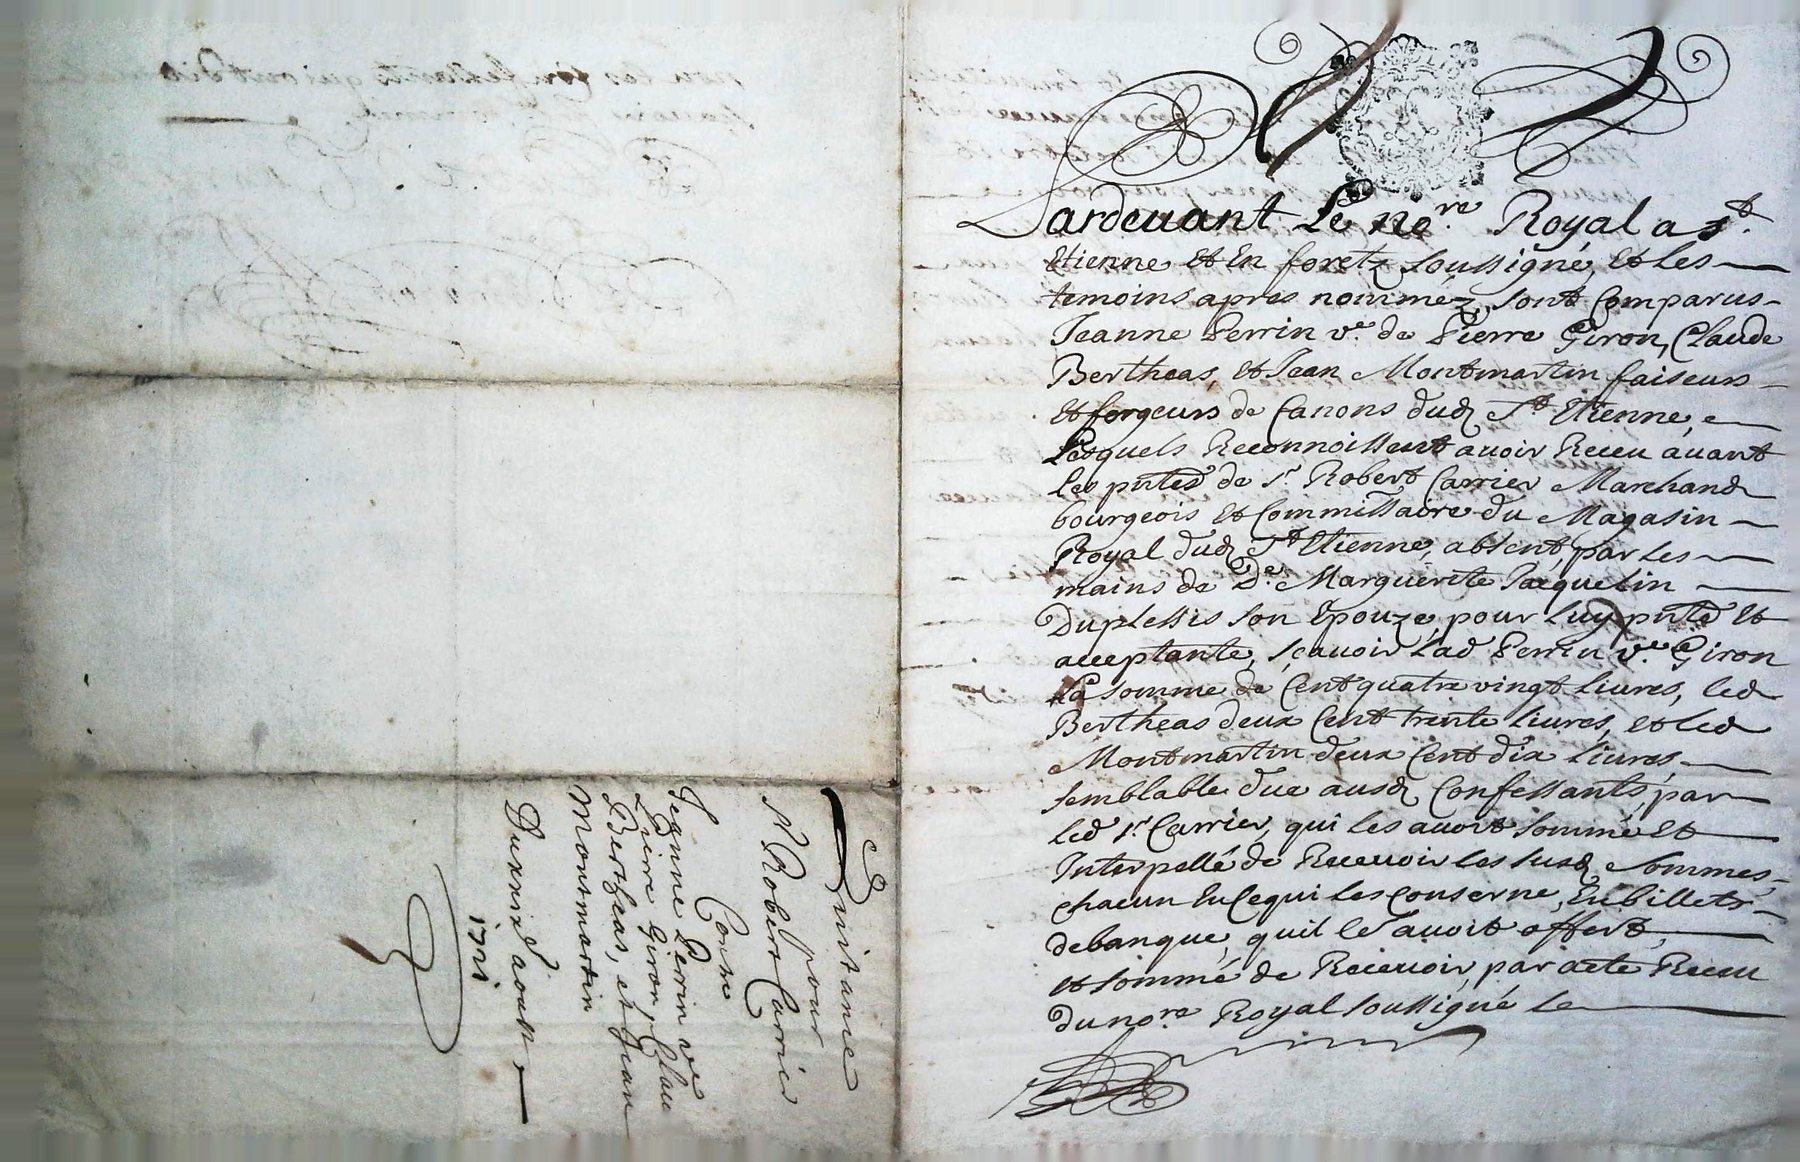 Pardeuant Le no.re Royal a St.
Etienne et En foretz soussigné, et Les
temoins apres nomméz, sont Comparus
Jeanne Perrin ve. de Pierre Giron, Claude
Bertheas, et Jean Montmartin faiseurs
et forgeurs de Canons dud St Etienne,
Lesquels Reconnoissent avoir Receu avant
Les pntes de Sr Robert Carrier Marchand
bourgeois et Commissaire du Magasin
Royal dud St Etienne, absent, par Les
mains de De. Marguerite Jacquelin
Duplessis son Epouze, pour Luy pnte et
acceptante, sçauoir Lad Perrin ve. Giron
La somme de Cent quatre vingt Liures, led
Bertheas deux Cent trente Liures, et led
Montmartin deux Cent dix Liures,
semblable due ausd Confessants, par
led Sr Carrier, qui les auoit sommé et
Interpellé de Receuoir les susd sommes,
chacun En Cequi les Conserne, En billets
debanque, quil les auoit offert,
et sommé de Receuoir, par acte Receu
du no.re Royal soussigné Le
Quittance
pour
Sr Robert Carrier
Contre
Jeanne Perrin ve
Pierre Giron, Clau
Bertheas, et Jean
Montmartin
aoust
1721